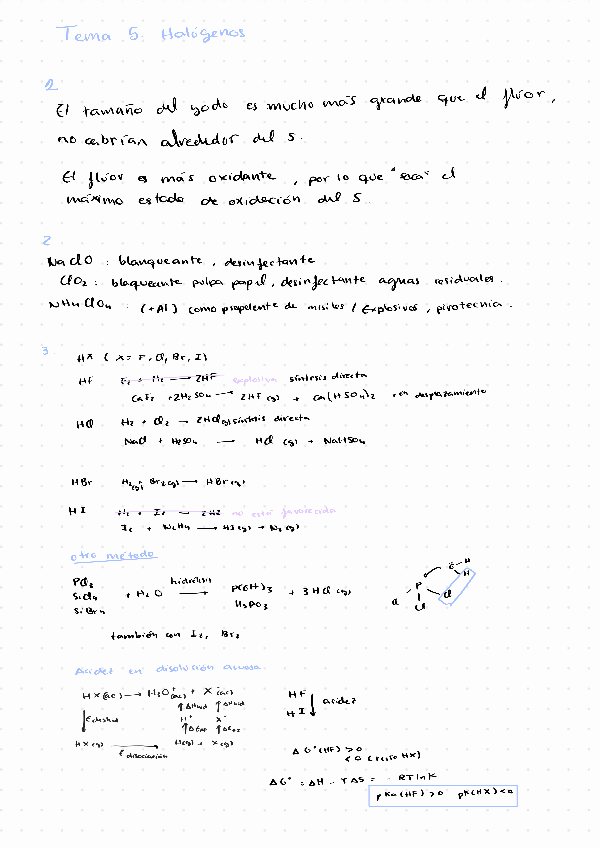 Tema 5. Halógenos
2
El tamaño del yodo es mucho más grande que el flúor,
no cabrían alrededor del S.
El flúor es más oxidante, por lo que "saca" el
máximo estado de oxidación del S
2
NaClO : blanqueante, desinfectante
ClO2 : blaqueante pulpa papel, desinfectante aguas residuales.
NH4ClO4 : (+Al) como propelente de misiles / explosivos, pirotecnia.
3
HX (X = F, Cl, Br, I)
HF F2 + H2 → 2HF explosiva síntesis directa
CaF2 + 2H2SO4 → 2HF (g) + Ca(HSO4)2 rxn desplazamiento
HCl H2 + Cl2 → 2HCl(g) síntesis directa
NaCl + H2SO4 → HCl (g) + NaHSO4
HBr H2(g) Br2(g) → HBr(g)
HI H2 + I2 → 2HI no está favorecida
I2 + N2H4 → HI(g) + N2(g)
otro método
PCl3
SiCl4 + H2O hidrólisis → P(OH)3 + 3 HCl (g)
SiBr4 H3PO3
también con I2, Br2
P Cl Cl Cl O H H
Acidez en disolución acuosa.
HX(ac) → H3O+(ac) + X-(ac)
ΔHhid ΔHhid
H+ X-
HX(g) → H(g) + X(g)
E disociación
HF
HI ↓ acidez
ΔG°(HF) > 0
< 0 (resto HX)
ΔG° = ΔH - TΔS = - RTlnK
pKa(HF) > 0 pK(HX) < 0